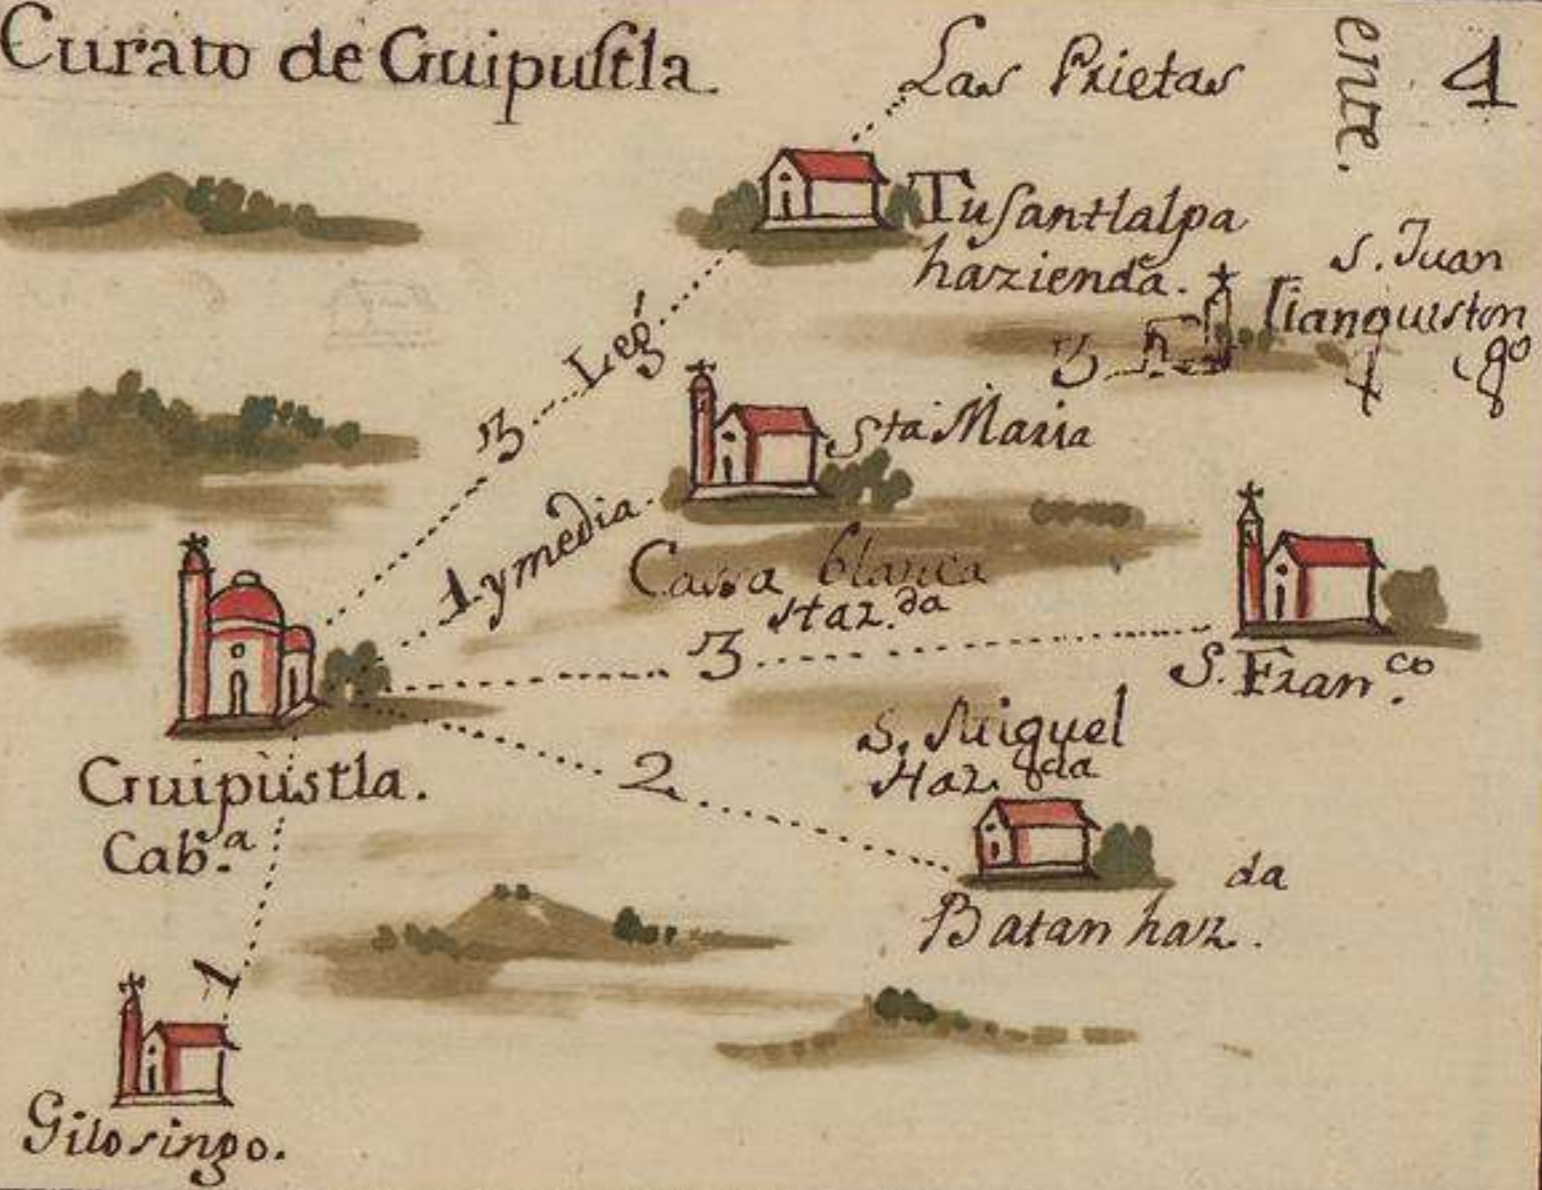 Curato de Guipustla.
Las Prietas
ente.
4
Tusantlalpa
hazienda.
S. Juan
Tianguiston
3
3 Leg.
Sta Maria
1 y media
Cassa blanca
Haz.da
3
S. Fran.co
Guipustla.
Cab.a
2
S. Miguel
Haz.da
Batan haz.da
1
Gilosingo.